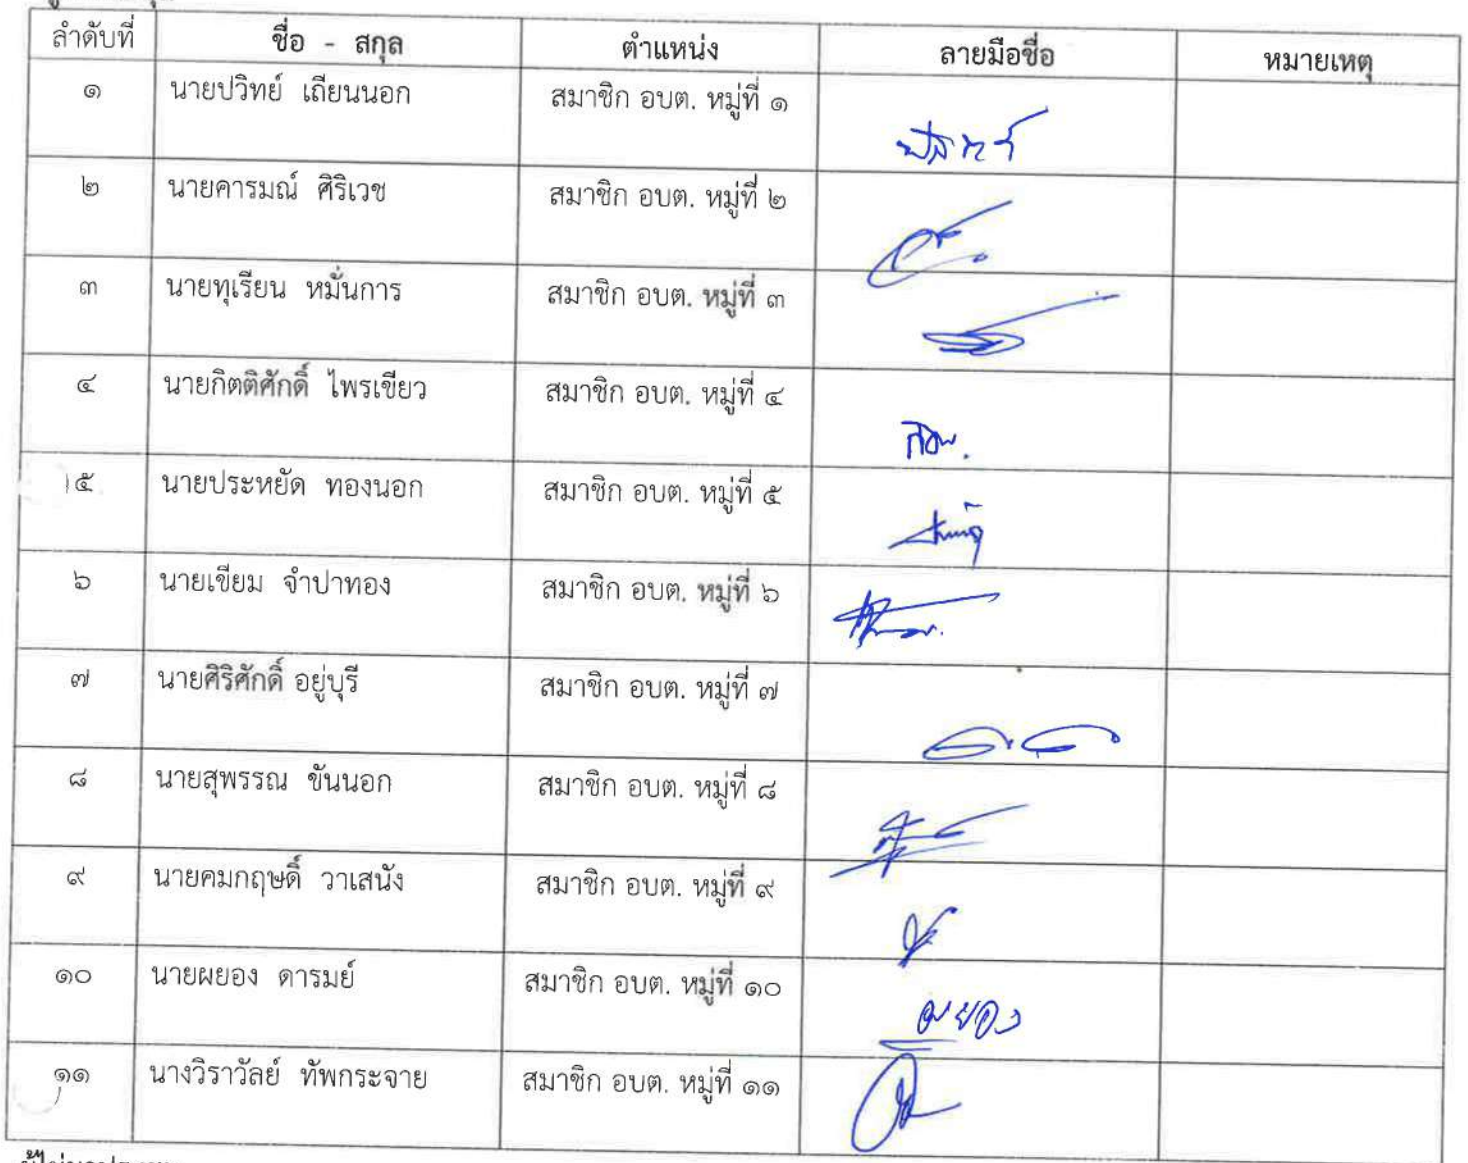 ลำดับที่ ชื่อ - สกุล ตำแหน่ง ลายมือชื่อ หมายเหตุ
๑ นายปวิทย์ เถียนนอก สมาชิก อบต. หมู่ที่ ๑
๒ นายคารมณ์ ศิริเวช สมาชิก อบต. หมู่ที่ ๒
๓ นายทุเรียน หมั่นการ สมาชิก อบต. หมู่ที่ ๓
๔ นายกิตติศักดิ์ ไพรเขียว สมาชิก อบต. หมู่ที่ ๔
๕ นายประหยัด ทองนอก สมาชิก อบต. หมู่ที่ ๕
๖ นายเขียม จำปาทอง สมาชิก อบต. หมู่ที่ ๖
๗ นายศิริศักดิ์ อยู่บุรี สมาชิก อบต. หมู่ที่ ๗
๘ นายสุพรรณ ขันนอก สมาชิก อบต. หมู่ที่ ๘
๙ นายคมกฤษดิ์ วาเสนัง สมาชิก อบต. หมู่ที่ ๙
๑๐ นายผยอง ดารมย์ สมาชิก อบต. หมู่ที่ ๑๐ ผยอง
๑๑ นางวิราวัลย์ ทัพกระจาย สมาชิก อบต. หมู่ที่ ๑๑